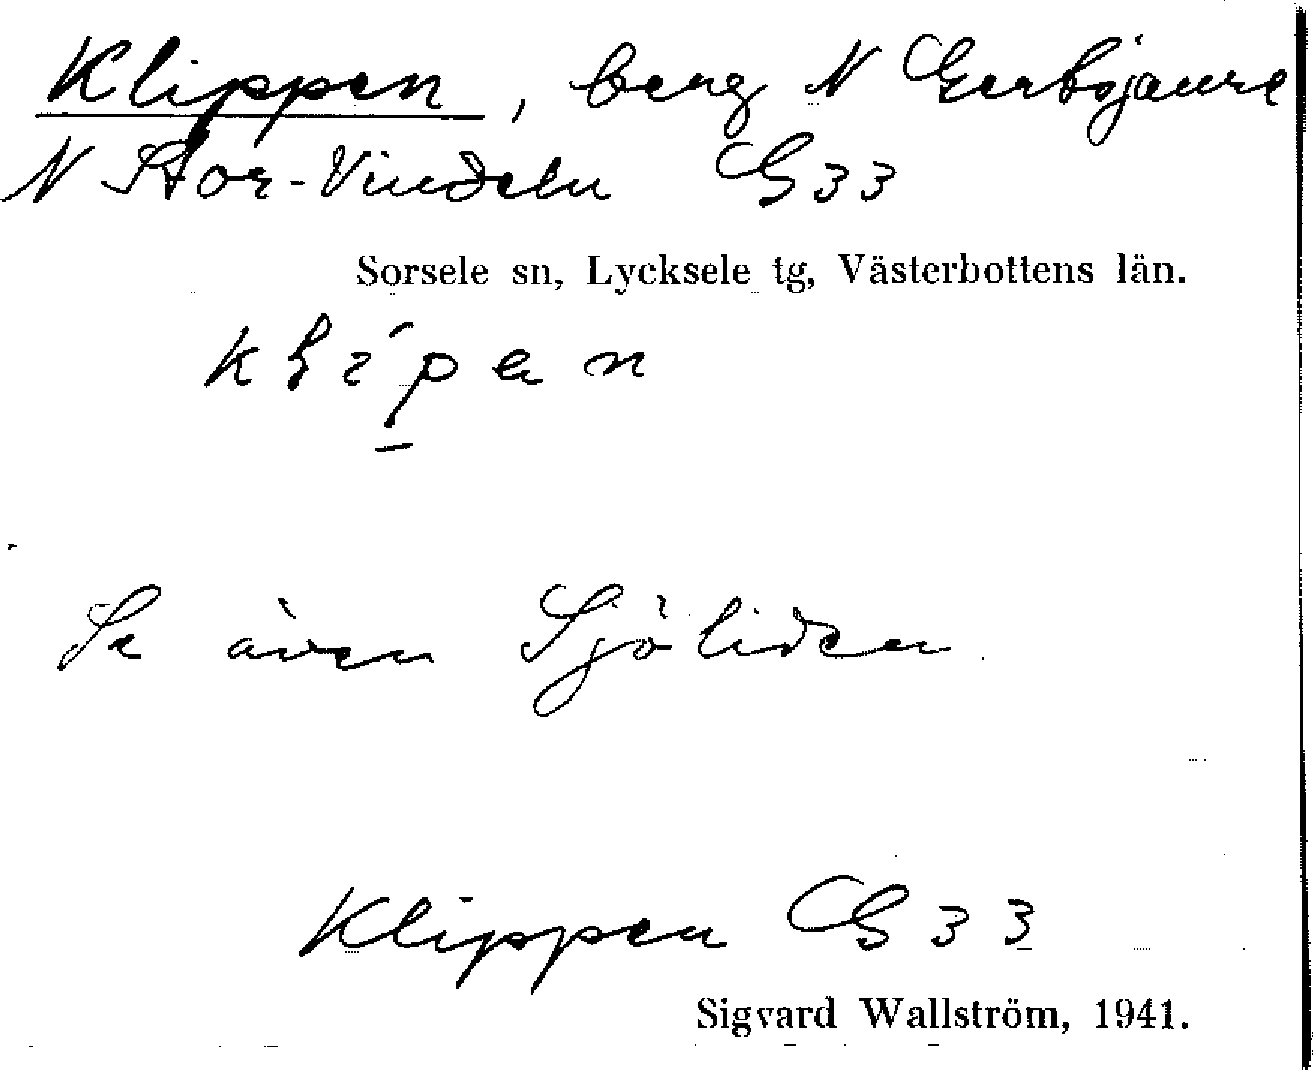 Klippen, berg N Gerbojaure
N Stor-Vindeln G33
Sorsele sn, Lycksele tg, Västerbottens län.
Se även Sjöliden
Klippen G33
Sigvard Wallström, 1941.